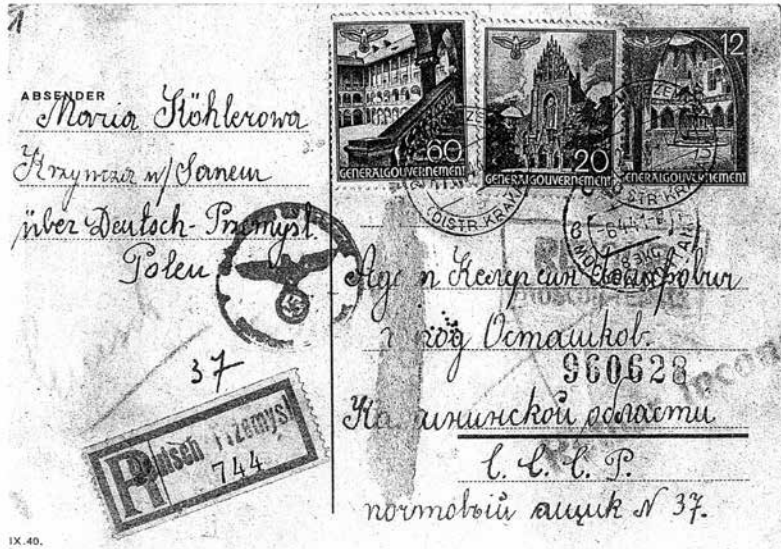 1
ABSENDER
Maria Köhlerowa
Krzywcza n/Sanem
über Deutsch-Przemysl.
Polen
37
R
Deutsch Przemysl
744
IX.40.
60
GENERALGOUVERNEMENT
20
GENERALGOUVERNEMENT
12
GENERALGOUVERNEMENT
(DISTR. KRAK
Келер син
город Осташков.
960628
Ка ининской области
С. С. С. Р.
почтовый ящик N 37.